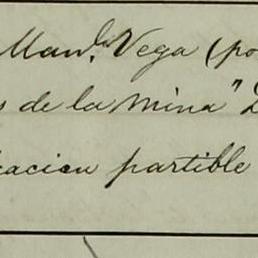 Manl. Vega (po
s de la mina "
cacion partible